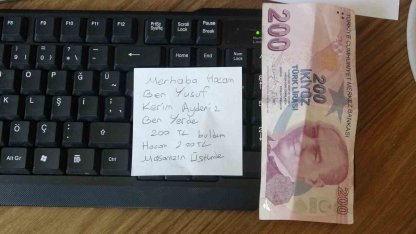 Merhaba Hocam
Ben Yusuf
Kerim Aydeniz
Ben Yerde
200 TL buldum
Hocam 200TL
Masanızın Üstünde
F9
F10
F11
F12
PrtSc
SysRq
Scroll
Lock
Pause
Break
Insert
Home
Num
Lock
End
Alt Gr
Ctrl
200
200
İKİYÜZ
TÜRK LİRASI
TÜRKİYE CUMHURİYET MERKEZ BANKASI
200